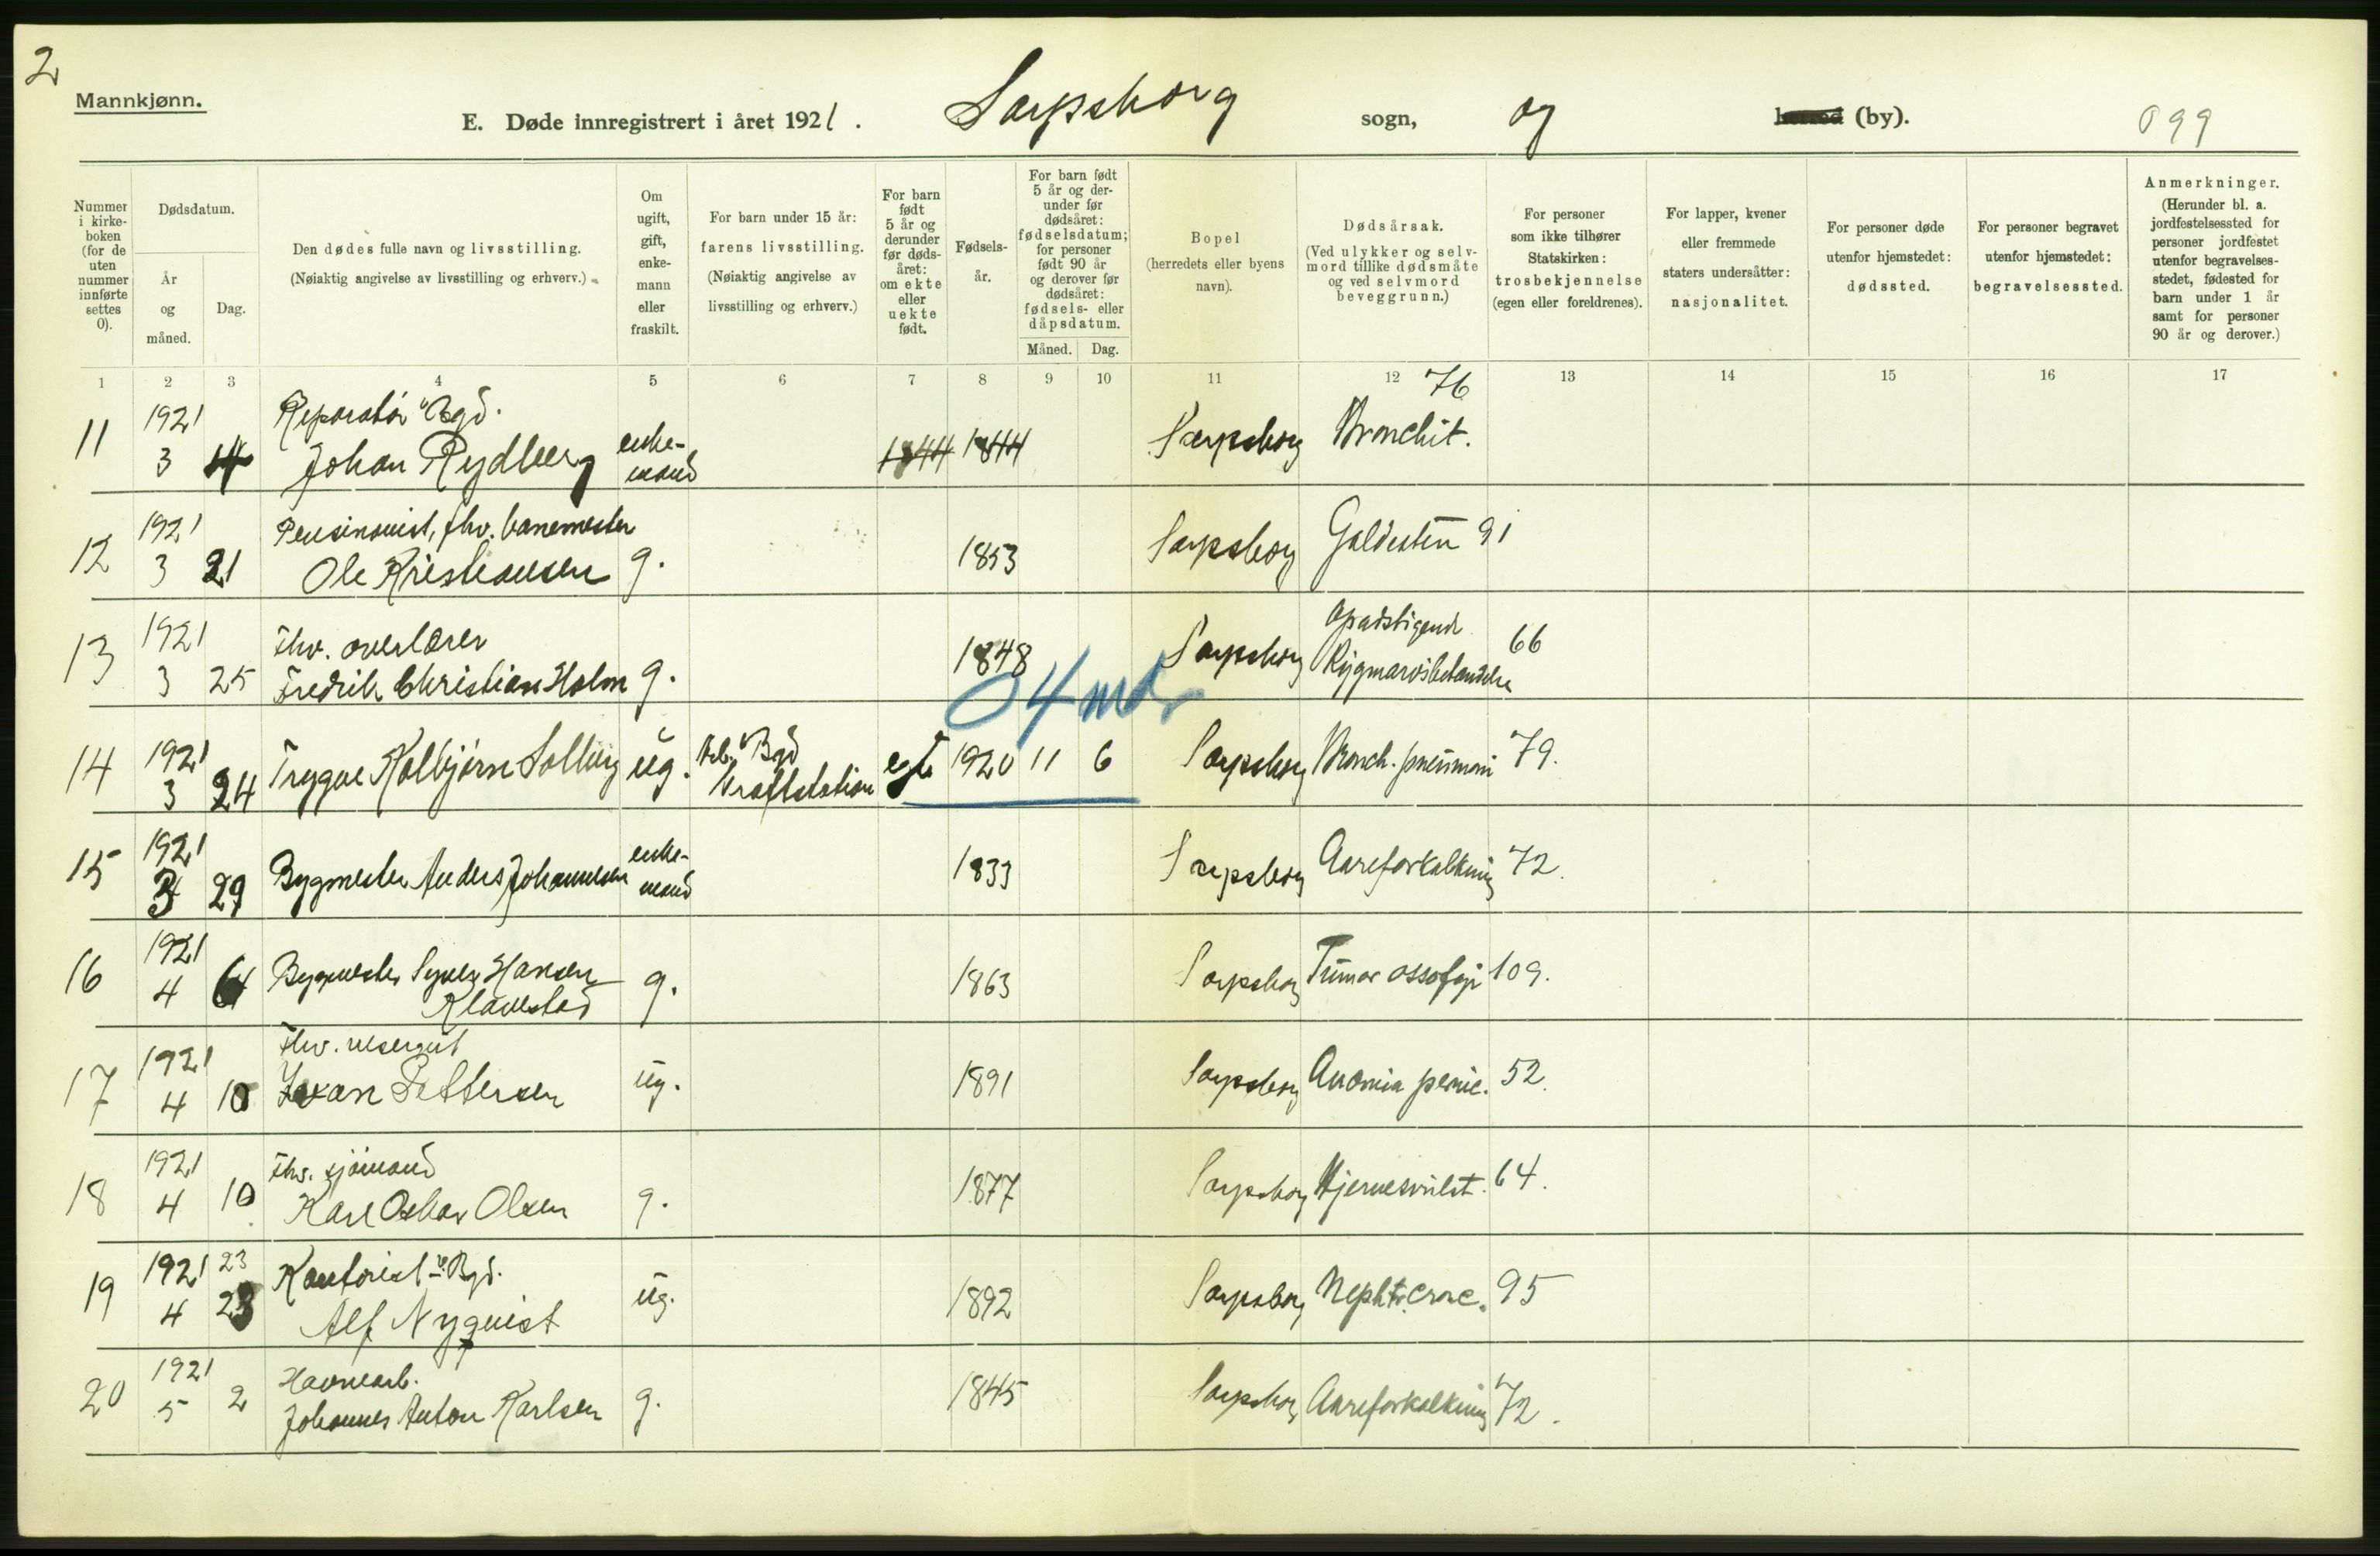 2
Mannkjønn.
E. Døde innregistrert i året 1921. Sarpsborg sogn, og herred (by). 099
Nummer i kirke-boken (for de uten nummer innførte settes 0).
Dødsdatum.
År og måned.
Dag.
Den dødes fulle navn og livsstilling.
(Nøiaktig angivelse av livsstilling og erhverv.)
Om ugift, gift, enke-mann eller fraskilt.
For barn under 15 år: farens livsstilling. (Nøiaktig angivelse av livsstilling og erhverv.)
For barn født 5 år og derunder før døds-året: om ekte eller uekte født.
Fødsels-år.
For barn født 5 år og der-under før dødsåret: fødselsdatum; for personer født 90 år og derover før dødsåret: fødsels- eller dåpsdatum.
Måned. Dag.
Bopel (herredets eller byens navn).
Dødsårsak. (Ved ulykker og selv-mord tillike dødsmåte og ved selvmord beveggrunn.)
For personer som ikke tilhører Statskirken: trosbekjennelse (egen eller foreldrenes).
For lapper, kvener eller fremmede staters undersåtter: nasjonalitet.
For personer døde utenfor hjemstedet: dødssted.
For personer begravet utenfor hjemstedet: begravelsessted.
Anmerkninger. (Herunder bl. a. jordfestelsessted for personer jordfestet utenfor begravelses-stedet, fødested for barn under 1 år samt for personer 90 år og derover.)
1 2 3 4 5 6 7 8 9 10 11 12 13 14 15 16 17
76
1921 Reparatør v. Bgd.
11 3 14 Johan Rydberg enke-mand 1844 1844 Sarpsborg Bronchit.
1921 Pensionist, fhv. banemester
12 3 21 Ole Kristiansen g. 1853 Sarpsborg Galdesten 91
1921 Fhv. overlærer Opadstigende
13 3 25 Fredrik Christian Holm g. 1848 Sarpsborg Rygmarvsbetændelse 66
0 4 mdr
14 1921 3 24 Trygve Kolbjørn Solberg ug. Arb. v. Bgd Kraftstation egte 1920 11 6 Sarpsborg Bronch. pneumoni 79.
15 1921 3 29 Bygmester Anders Johannesen enke-mand 1833 Sarpsborg Aareforkalkning 72.
16 1921 4 6 Bygmester Syver Hansen Klavestad g. 1863 Sarpsborg Tumor 109.
1921 Fhv. visergut
17 4 10 Ivan Pettersen ug. 1891 Sarpsborg Anæmia pernic. 52.
1921 Fhv. sjømand
18 4 10 Karl Oskar Olsen g. 1877 Sarpsborg Hjernesvulst. 64.
1921 23 Kontorist v. Bgd.
19 4 23 Alf Nyquist ug. 1892 Sarpsborg 95
1921 Havnearb.
20 5 2 Johannes Anton Karlsen g. 1845 Sarpsborg Aareforkalkning 72.